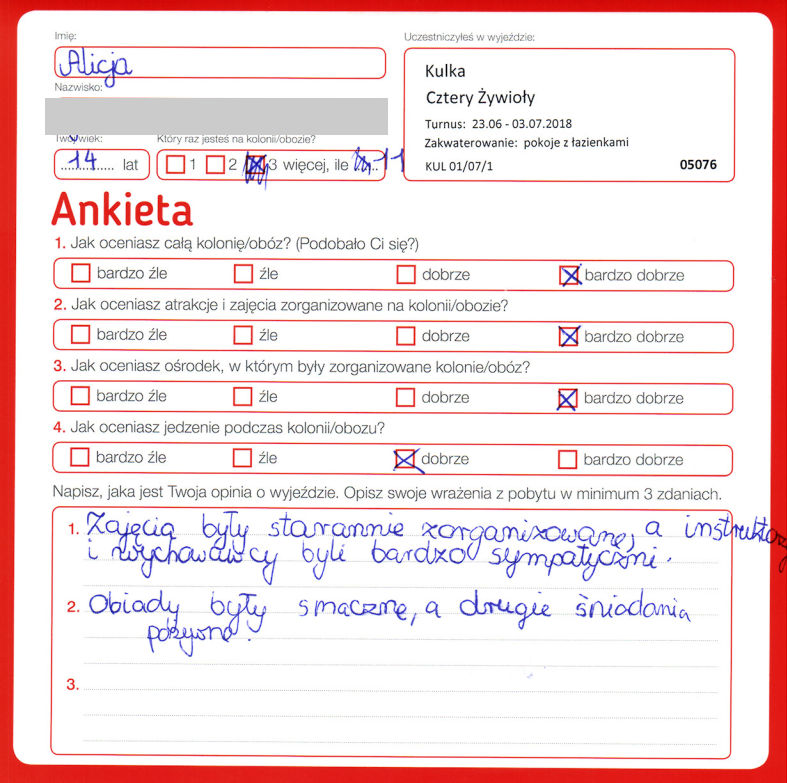 Imię:
Alicja
Nazwisko:
Twój wiek:
14 lat
Który raz jesteś na kolonii/obozie?
1 2 3 więcej, ile 11
Uczestniczyłeś w wyjeździe:
Kulka
Cztery Żywioły
Turnus: 23.06 - 03.07.2018
Zakwaterowanie: pokoje z łazienkami
KUL 01/07/1 05076
Ankieta
1. Jak oceniasz całą kolonię/obóz? (Podobało Ci się?)
bardzo źle źle dobrze bardzo dobrze
2. Jak oceniasz atrakcje i zajęcia zorganizowane na kolonii/obozie?
bardzo źle źle dobrze bardzo dobrze
3. Jak oceniasz ośrodek, w którym były zorganizowane kolonie/obóz?
bardzo źle źle dobrze bardzo dobrze
4. Jak oceniasz jedzenie podczas kolonii/obozu?
bardzo źle źle dobrze bardzo dobrze
Napisz, jaka jest Twoja opinia o wyjeździe. Opisz swoje wrażenia z pobytu w minimum 3 zdaniach.
1. Zajęcia były starannie zorganizowane, a instruktorzy
i wychowawcy byli bardzo sympatyczni.
2. Obiady były smaczne, a drugie śniadania
pożywne.
3.